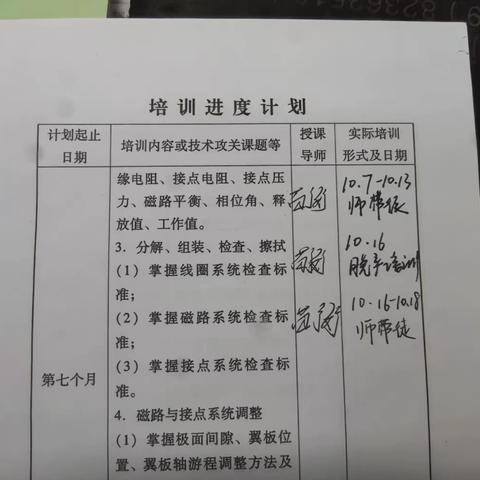 培训进度计划
计划起止日期
培训内容或技术攻关课题等
授课导师
实际培训形式及日期
缘电阻、接点电阻、接点压
力、磁路平衡、相位角、释
放值、工作值。
10.7-10.13
师带徒
3．分解、组装、检查、擦拭
(1) 掌握线圈系统检查标
准；
10.16
脱产培训
(2) 掌握磁路系统检查标
准；
10.16-10.18
师带徒
(3) 掌握接点系统检查标
准。
第七个月
4．磁路与接点系统调整
(1) 掌握极面间隙、翼板位
置、翼板轴游程调整方法及